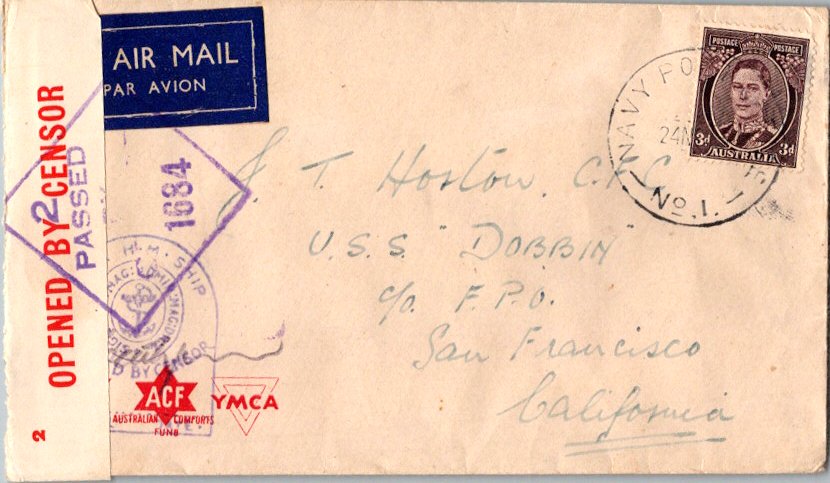 AIR MAIL
PAR AVION
OPENED BY CENSOR
2
2
PASSED
BY
1684
H.M. SHIP
BY CENSOR
ACF
AUSTRALIAN COMFORTS
FUND
YMCA
NAVY PO
24
No.1.
POSTAGE POSTAGE
3d AUSTRALIA 3d
J. T. Hoston C.F.C
U.S.S. "DOBBIN"
c/o F.P.O.
San Francisco
California